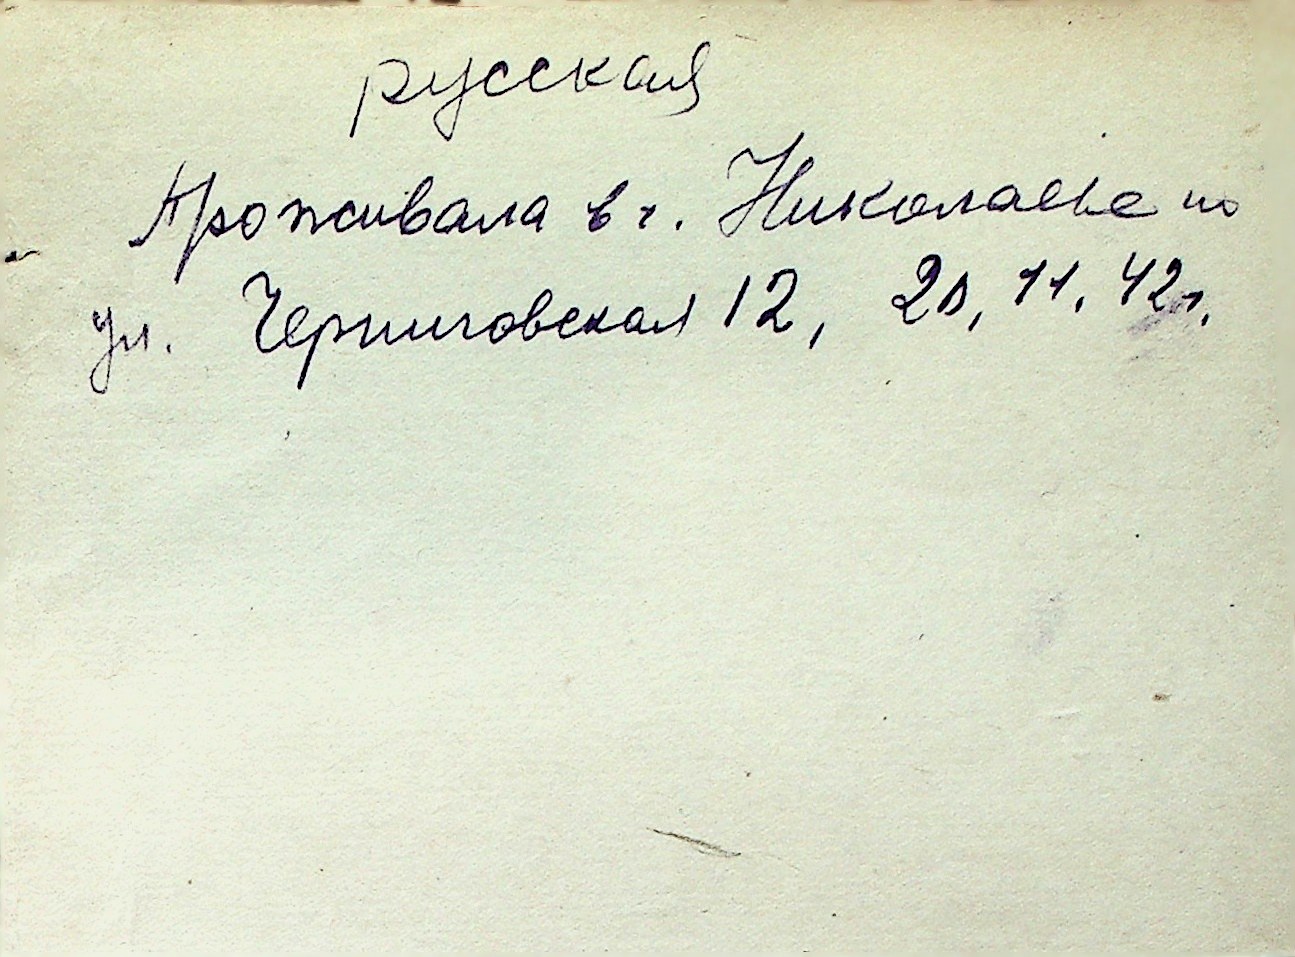 русская
Проживала в г. Николаеве по
ул. Черниговская 12, 20, 11, 42г.